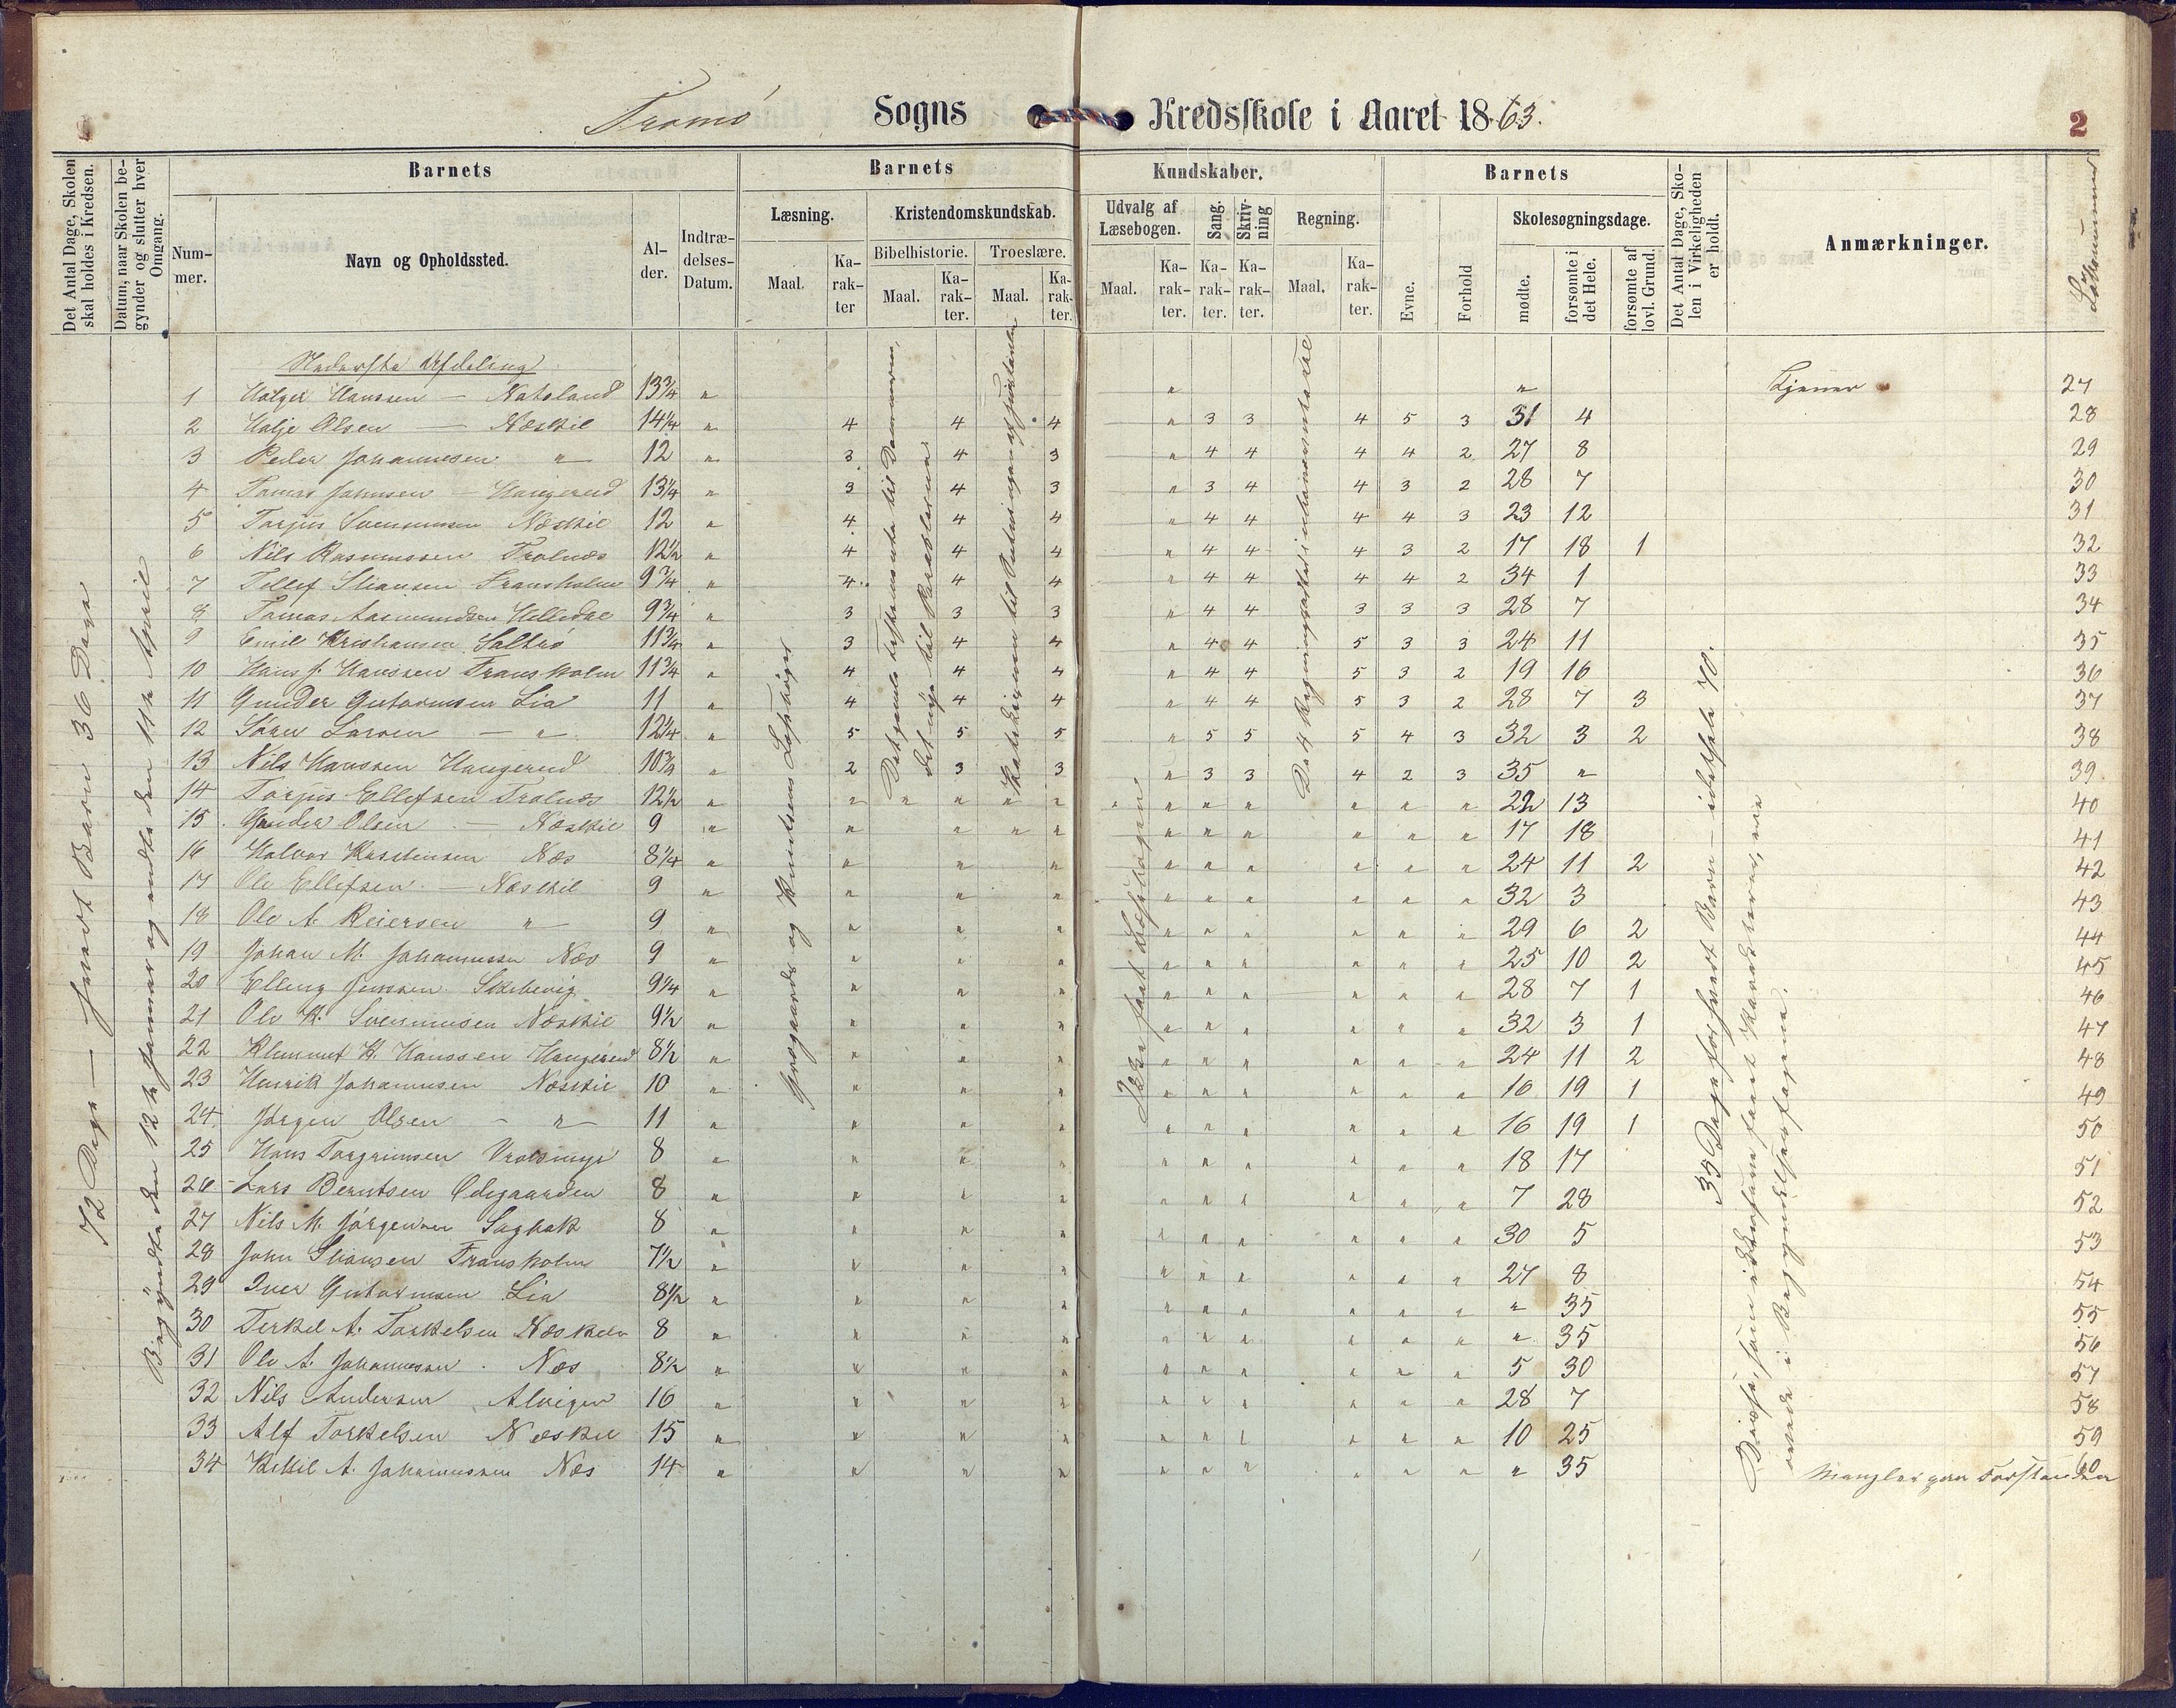 Tromö Sogns Kredsskole i Aaret 1863. 2
Det Antal Dage, Skolen skal holdes i Kredsen.
Datum, naar Skolen begynder og slutter hver Omgang.
Barnets
Nummer.
Navn og Opholdssted.
Alder.
Indtrædelses-Datum.
Barnets Kundskaber.
Læsning.
Maal.
Karakter
Kristendomskundskab.
Bibelhistorie.
Maal.
Karakter.
Troeslære.
Maal.
Karakter.
Udvalg af Læsebogen.
Maal.
Karakter.
Sang.
Karakter.
Skrivning
Karakter.
Regning.
Maal.
Karakter.
Barnets
Evne.
Forhold
Skolesøgningsdage.
mødte.
forsømte i det Hele.
forsømte af lovl. Grund.
Det Antal Dage, Skolen i Virkeligheden er holdt.
Anmærkninger.
Löbenummer
72 Dage — hvert Barn 36 Dage
Begyndte den 12te Januar og endte den 11te April
Nederste Afdeling
1 Holger Hanssen — Natoland 13¾ " " " Tjener 27
2 Halje Olsen — Næskil 14¼ " 4 4 4 " 3 3 4 5 3 31 4 28
3 Peder Johannesen " 12 " 3 4 3 " 4 4 4 4 2 27 8 29
4 Tomas Jahnsen — Haugerud 13¼ " 3 4 3 " 3 4 4 3 2 28 7 30
5 Torjus Svennumsen Næskil 12 " 4 4 4 " 4 4 4 4 3 23 12 31
6 Nils Rasmussen Tralnæs 12½ " 4 4 4 " 4 4 4 3 2 17 18 1 32
7 Tellef Stiansen Fransholm 9¾ " 4 4 4 " 4 4 4 4 2 34 1 33
8 Tomas Aasmundsen Helledal 9¾ " 3 3 3 " 4 4 3 3 3 28 7 34
9 Emil Kristiansen Saltrö 11¾ " 3 4 4 " 4 4 5 3 3 24 11 35
10 Hans J. Hanssen Fransholm 11¾ " 4 4 4 " 4 4 5 3 2 19 16 36
11 Gunder Gutormsen Lia 11 " 4 4 4 " 4 4 5 3 2 28 7 3 37
12 Sören Larsen — " 12¼ " 5 5 5 " 5 5 5 4 3 32 3 2 38
13 Nils Hanssen Haugerud 10¾ " 2 3 3 " 3 3 4 2 3 35 " 39
14 Torjus Ellefsen Tralnæs 12½ " " " " " " " " " " " " " 22 13 40
15 Gunder Olsen — Næskil 9 " " " " " " " " " " " 17 18 41
16 Halvor Karstensen Næs 8¼ " " " " " " " " " " 24 11 2 42
17 Ole Ellefsen — Næskil 9 " " " " " " " " " " 32 3 43
18 Ole A. Reiersen " 9 " " " " " " " " " " 29 6 2 44
19 Johan M. Johannessen Næs 9 " " " " " " " " " " 25 10 2 45
20 Elling Jenssen Skibevig 9¼ " " " " " " " " " " 28 7 1 46
21 Ole K. Svennumsen Næskil 9½ " " " " " " " " " " 32 3 1 47
22 Klemmet H. Hanssen Haugerud 8½ " " " " " " " " " " 24 11 2 48
23 Henrik Johannesen Næskil 10 " " " " " " " " " " 16 19 1 49
24 Jörgen Olsen — " 11 " " " " " " " " " " 16 19 1 50
25 Hans Torgrimsen Vrolsmyr 8 " " " " " " " " " " 18 17 51
26 Lars Berntsen Ödegaarden 8 " " " " " " " " " " 7 28 52
27 Nils M. Jörgensen Sagbak 8 " " " " " " " " " " 30 5 53
28 John Stiansen Fransholm 7½ " " " " " " " " " " 27 8 54
29 Iver Gutormsen Lia 8½ " " " " " " " " " " " 35 55
30 Terkel A. Torkelsen Næskil 8 " " " " " " " " " " " 35 56
31 Ole A. Johannessen Næs 8½ " " " " " " " " " " 5 30 57
32 Nils Andersen Alvigen 16 " " " " " " " " " " 28 7 58
33 Alf Torkelsen Næskil 15 " " " " " " " " " " 10 25 59
34 Kittil A. Johannessen Næs 14 " " " " " " " " " " " 35 Mangler paa Forstanden 60
Jensens Læsebøger
Det gamle Testamente til Dommerne,
det nye til Parablerne
Ikke faaet Læsebogen
De 4 Regningsarter i ubenævnte Tal
35 Dage for hvert Barn — idethele 70.
Disse, som ikke have faaet Karakterer, ere
i Begyndelsesfagene.